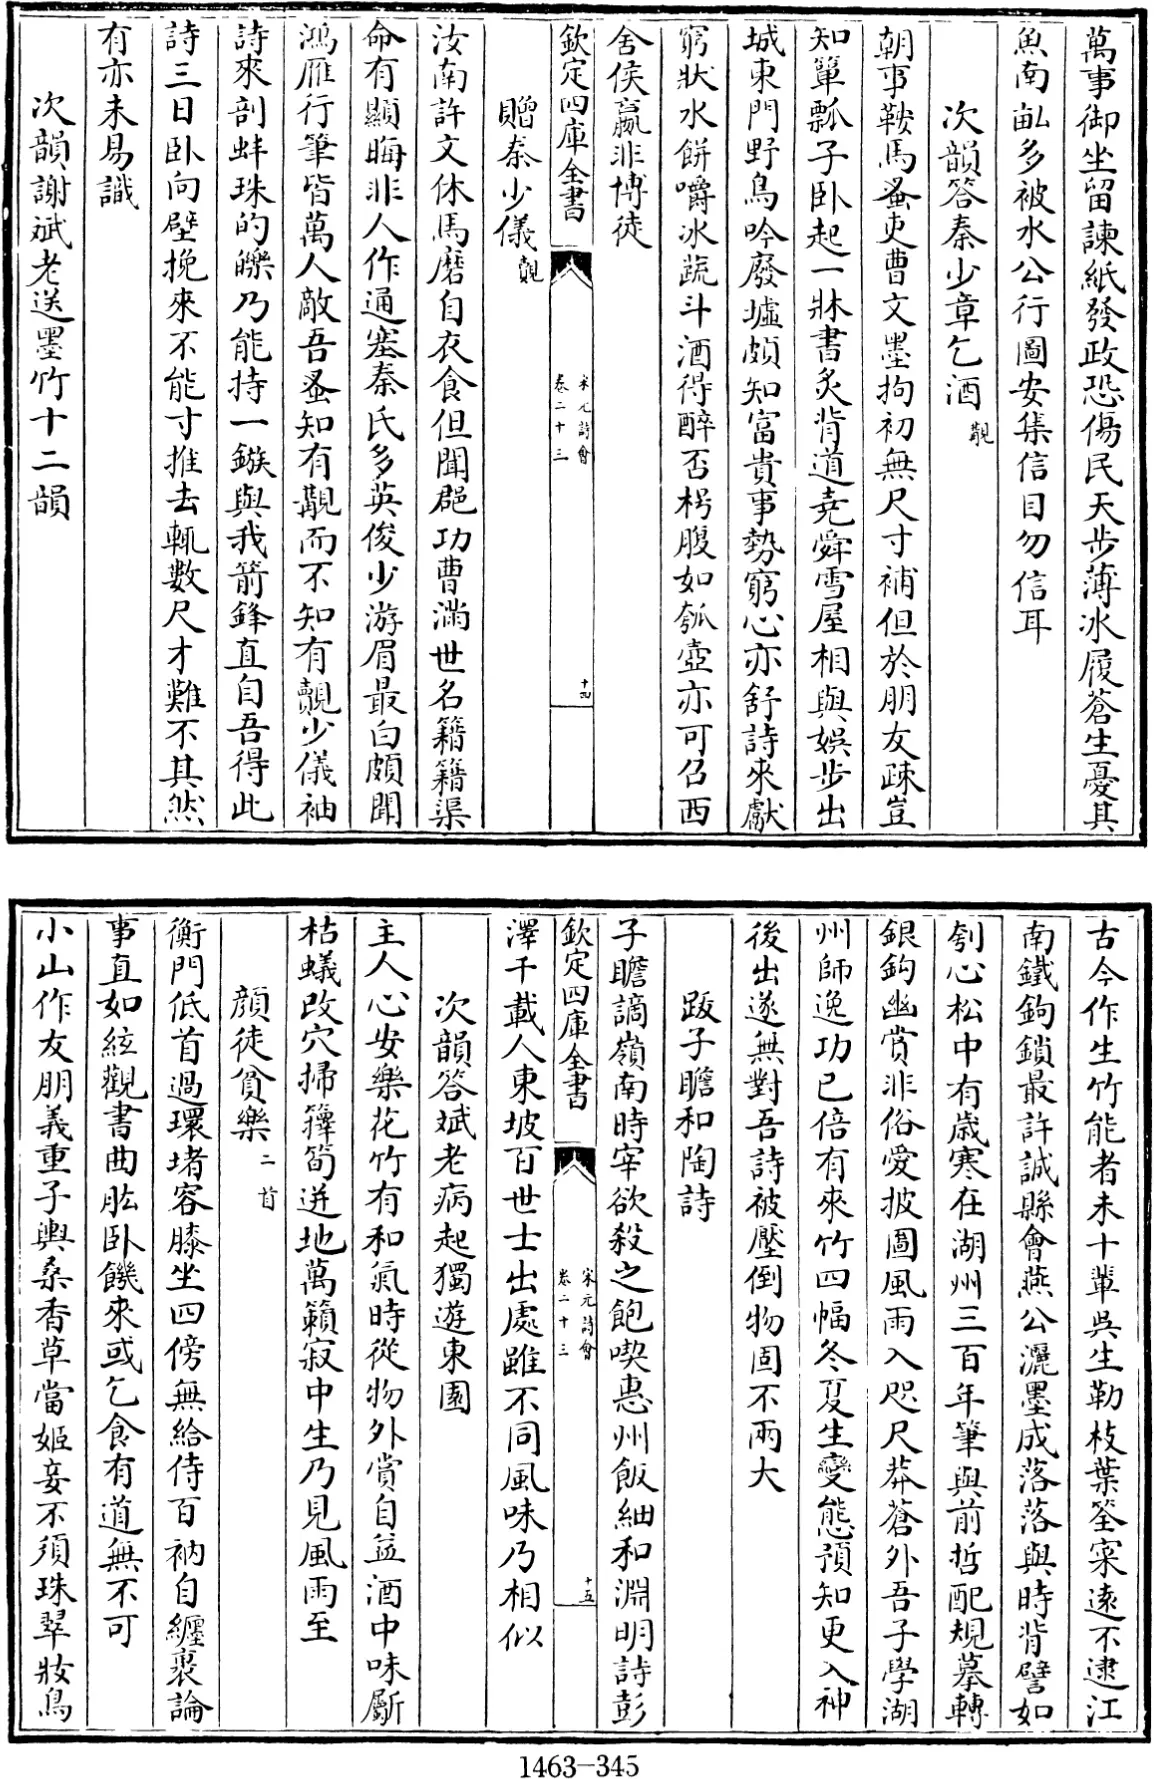 萬事御坐留諫紙發政恐傷民天步薄冰履蒼生憂其
魚南畝多被水公行圖安集信目勿信耳
次韻答秦少章乞酒 覯
朝事鞍馬蚤吏曹文墨拘初無尺寸補但於朋友疎豈
知簞瓢子卧起一牀書炙背道堯舜雪屋相與娛步出
城東門野鳥吟廢墟頗知富貴事勢窮心亦舒詩來獻
窮狀水餅嚼冰蔬斗酒得醉否枵腹如瓠壺亦可召西
舍侯嬴非博徒
欽定四庫全書
宋元詩會
卷二十三
十四
贈秦少儀 覿
汝南許文休馬磨自衣食但聞郡功曹滿世名籍籍渠
命有顯晦非人作通塞秦氏多英俊少游眉最白頗聞
鴻雁行筆皆萬人敵吾蚤知有覯而不知有覿少儀袖
詩來剖蚌珠的皪乃能持一鏃與我箭鋒直自吾得此
詩三日卧向壁挽來不能寸推去輒數尺才難不其然
有亦未易識
次韻謝斌老送墨竹十二韻
古今作生竹能者未十輩吳生勒枝葉筌寀遠不逮江
南鐵鉤鎖最許誠懸會燕公灑墨成落落與時背譬如
刳心松中有歲寒在湖州三百年筆與前哲配規摹轉
銀鉤幽賞非俗愛披圖風雨入咫尺莽蒼外吾子學湖
州師逸功已倍有來竹四幅冬夏生變態預知更入神
後出遂無對吾詩被壓倒物固不兩大
跋子瞻和陶詩
子瞻謫嶺南時宰欲殺之飽喫惠州飯細和淵明詩彭
欽定四庫全書
宋元詩會
卷二十三
十五
澤千載人東坡百世士出處雖不同風味乃相似
次韻答斌老病起獨遊東園
主人心安樂花竹有和氣時從物外賞自益酒中味斸
枯蟻改穴掃籜筍迸地萬籟寂中生乃見風雨至
顔徒貧樂 二首
衡門低首過環堵容膝坐四傍無給侍百衲自纏裹論
事直如絃觀書曲肱卧饑來或乞食有道無不可
小山作友朋義重子輿桑香草當姬妾不須珠翠妝鳥
1463-345